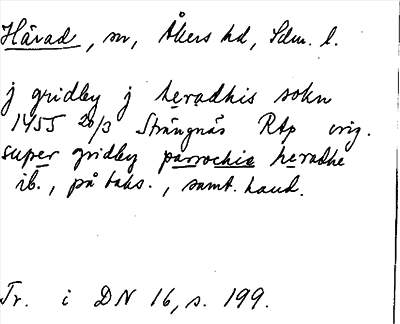 Härad, sn, Åkers hd, Sdm. l.
j gridby j heradhis sokn
1455 20/3 Strängnäs Rtp orig.
super gridby parrochie heradhe
ib., på baks., samt. hand.
Tr. i DN 16, s. 199.